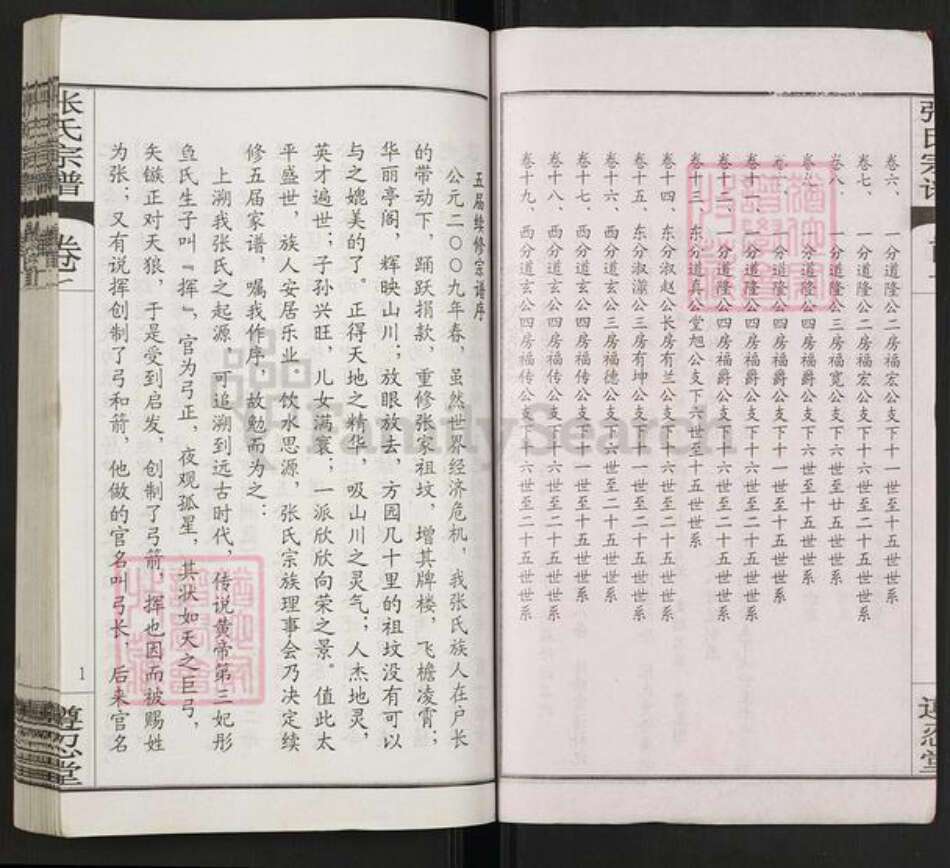 张氏宗谱
卷六、 一分道隆公二房福宏公支下十一世至十五世世系
卷七、 一分道隆公二房福宏公支下十六世至二十五世世系
卷八、 一分道隆公三房福宽公支下六世至廿五世世系
分道隆公四房福爵公支下六世至十五世世系
分道隆公四房福爵公支下十六世至二十五世世系
一分道隆公四房福爵公支下十一世至十五世世系
一分道隆公四房福爵公支下十六世至二十五世世系
卷十三、 东分道真公堂旭公支下六世至十五世世系
卷十四、 东分淑赵公长房有兰公支下十六世至二十五世世系
卷十五、 东分淑濴公三房有坤公支下十一世至二十五世世系
卷十六、 西分道玄公三房福德公支下六世至二十五世世系
卷十七、 西分道玄公四房福传公支下十一世至十五世世系
卷十八、 西分道玄公四房福传公支下十六世至二十五世世系
卷十九、 西分道玄公四房福传公支下十六世至二十五世世系
遵忍堂
五届续修宗谱序
公元二〇〇九年春，虽然世界经济危机，我张氏族人在户长
的带动下，踊跃捐款，重修张家祖坟，增其牌楼，飞檐凌霄；
华丽亭阁，辉映山川；放眼放去，方园几十里的祖坟没有可以
与之媲美的了。正得天地之精华，吸山川之灵气；人杰地灵，
英才遍世；子孙兴旺，儿女满寰；一派欣欣向荣之景。值此太
平盛世，族人安居乐业，饮水思源，张氏宗族理事会乃决定续
修五届家谱，嘱我作序，故勉而为之：
上溯我张氏之起源，可追溯到远古时代，传说黄帝第三妃彤
鱼氏生子叫『挥』，官为弓正，夜观孤星，其状如天之巨弓，
矢镞正对天狼，于是受到启发，创制了弓箭，挥也因而被赐姓
为张；又有说挥创制了弓和箭，他做的官名叫弓长，后来官名
张氏宗谱
卷一
1
遵忍堂
FamilySearch